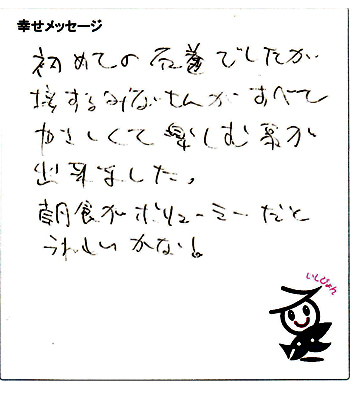 幸せメッセージ
初めての石巻でしたが
接するみなさんがすべて
やさしくて楽しむ事が
出来ました。
朝食がボリューミーだと
うれしいかな!
いしぴょん